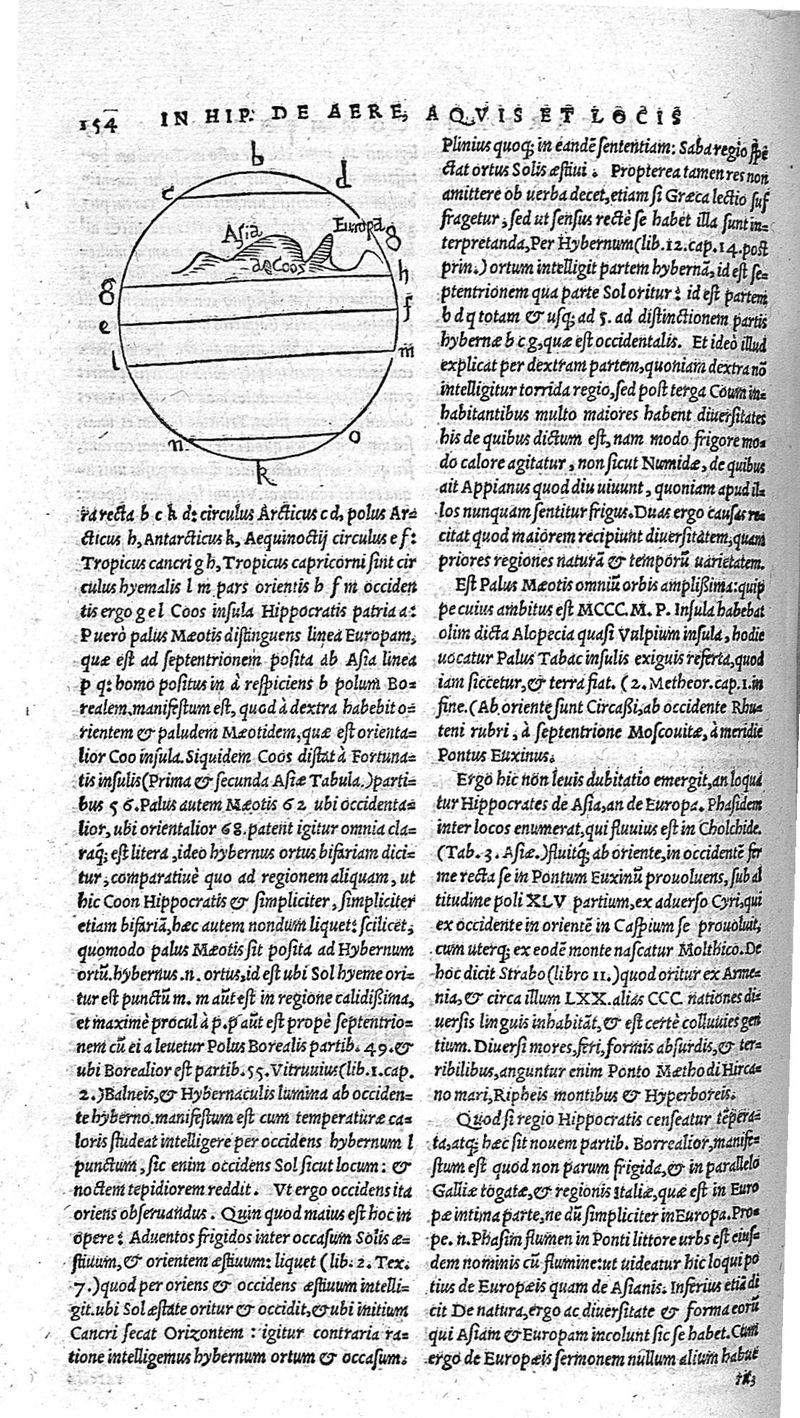 154 IN HIP. DE AERE, AQVIS ET LOCIS
b
c
d
Asia
Europa
g
de Coos
h
g
f
e
l
m̄
n
o
k
ra recta b c k d: circulus Arcticus c d, polus Ar=
cticus h, Antarcticus k, Aequinoctij circulus e f:
Tropicus cancri g h, Tropicus capricorni sint cir
culus hyemalis l m pars orientis b f m occiden
tis ergo g e l Coos insula Hippocratis patria a:
P uerò palus Mæotis distinguens linea Europam,
quæ est ad septentrionem posita ab Asia linea
p q: homo positus in à respiciens b polum Bo=
realem, manifestum est, quod à dextra habebit o=
rientem & paludem Mæotidem, quæ est orienta=
lior Coo insula. Siquidem Coos distat à Fortuna=
tis insulis (Prima & secunda Asiæ Tabula.) parti=
bus 56. Palus autem Mæotis 62 ubi occidenta=
lior, ubi orientalior 68. patent igitur omnia cla=
raq; est litera, ideo hybernus ortus bifariam dici=
tur, comparatiuè quo ad regionem aliquam, ut
hic Coon Hippocratis & simpliciter, simpliciter
etiam bifariā, hæc autem nondum liquet: scilicet,
quomodo palus Mæotis sit posita ad Hybernum
ortū. hybernus .n. ortus, id est ubi Sol hyeme ori=
tur est punctū m. m aūt est in regione calidißima,
et maximè procul à p. p aūt est propè septentrio=
nem cū ei a leuetur Polus Borealis partib. 49. &
ubi Borealior est partib. 55. Vitruuius (lib. 1. cap.
2.) Balneis, & Hybernaculis lumina ab occiden=
te hyberno. manifestum est cum temperaturæ ca=
loris studeat intelligere per occidens hybernum l
punctum, sic enim occidens Sol sicut locum: &
noctem tepidiorem reddit. Vt ergo occidens ita
oriens obseruandus. Quin quod maius est hoc in
opere: Aduentos frigidos inter occasum Solis æ=
stiuum, & orientem æstiuum: liquet (lib. 2. Tex.
7.) quod per oriens & occidens æstiuum intelli=
git. ubi Sol æstate oritur & occidit, & ubi initium
Cancri secat Orizontem: igitur contraria ra=
tione intelligemus hybernum ortum & occasum.
Plinius quoq; in eandē sententiam: Saba regio spē
ctat ortus Solis æstiui. Propterea tamen res non
amittere ob uerba decet, etiam si Græca lectio suf
fragetur, sed ut sensus rectè se habet illa sunt in=
terpretanda, Per Hybernum (lib. 12. cap. 14. post
prin.) ortum intelligit partem hybernā, id est se=
ptentrionem qua parte Sol oritur: id est partem
b d q totam & usq; ad 5. ad distinctionem partis
hybernæ b c g, quæ est occidentalis. Et ideò illud
explicat per dextram partem, quoniam dextra nō
intelligitur torrida regio, sed post terga Coum in=
habitantibus multo maiores habent diuersitates
his de quibus dictum est, nam modo frigore mo=
do calore agitatur, non sicut Numidæ, de quibus
ait Appianus quod diu uiuunt, quoniam apud il=
los nunquam sentitur frigus. Duas ergo causas re=
citat quod maiorem recipiunt diuersitatem, quam
priores regiones naturā & temporū uarietatem.
Est Palus Mæotis omniū orbis amplißima: quip
pe cuius ambitus est MCCC. M. P. Insula habebat
olim dicta Alopecia quasi Vulpium insula, hodie
uocatur Palus Tabac insulis exiguis referta, quod
iam siccetur, & terra fiat. (2. Metheor. cap. 1. in
fine. (Ab oriente sunt Circaßi, ab occidente Rhu=
teni rubri, à septentrione Moscouitæ, à meridie
Pontus Euxinus.
Ergo hic non leuis dubitatio emergit, an loqua
tur Hippocrates de Asia, an de Europa. Phasidem
inter locos enumerat, qui fluuius est in Cholchide.
(Tab. 3. Asiæ.) fluitq; ab oriente, in occidentē fer
me recta se in Pontum Euxinū prouoluens, sub al
titudine poli XLV partium, ex aduerso Cyri, qui
ex occidente in orientē in Caspium se prouoluit,
cum uterq; ex eodē monte nascatur Molthico. De
hoc dicit Strabo (libro 11.) quod oritur ex Arme=
nia, & circa illum LXX. aliàs CCC. nationes di=
uersis linguis inhabitāt, & est certè colluuies gen
tium. Diuersi mores, feri, formis absurdis, & ter=
ribilibus, anguntur enim Ponto Mæthodi Hirca=
no mari, Ripheis montibus & Hyperboreis.
Quod si regio Hippocratis censeatur tēpera=
ta, atq; hæc sit nouem partib. Borrealior, manife=
stum est quod non parum frigida, & in parallelo
Galliæ togatæ, & regionis Italiæ, quæ est in Euro
pæ intima parte, ne dū simpliciter in Europa. Pro=
pe .n. Phasim flumen in Ponti littore urbs est eius=
dem nominis cū flumine: ut uideatur hic loqui po
tius de Europæis quam de Asianis. Inferius etiā di
cit De natura, ergo ac diuersitate & forma eorū
qui Asiam & Europam incolunt sic se habet. Cūm
ergo de Europæis sermonem nullum alium habue